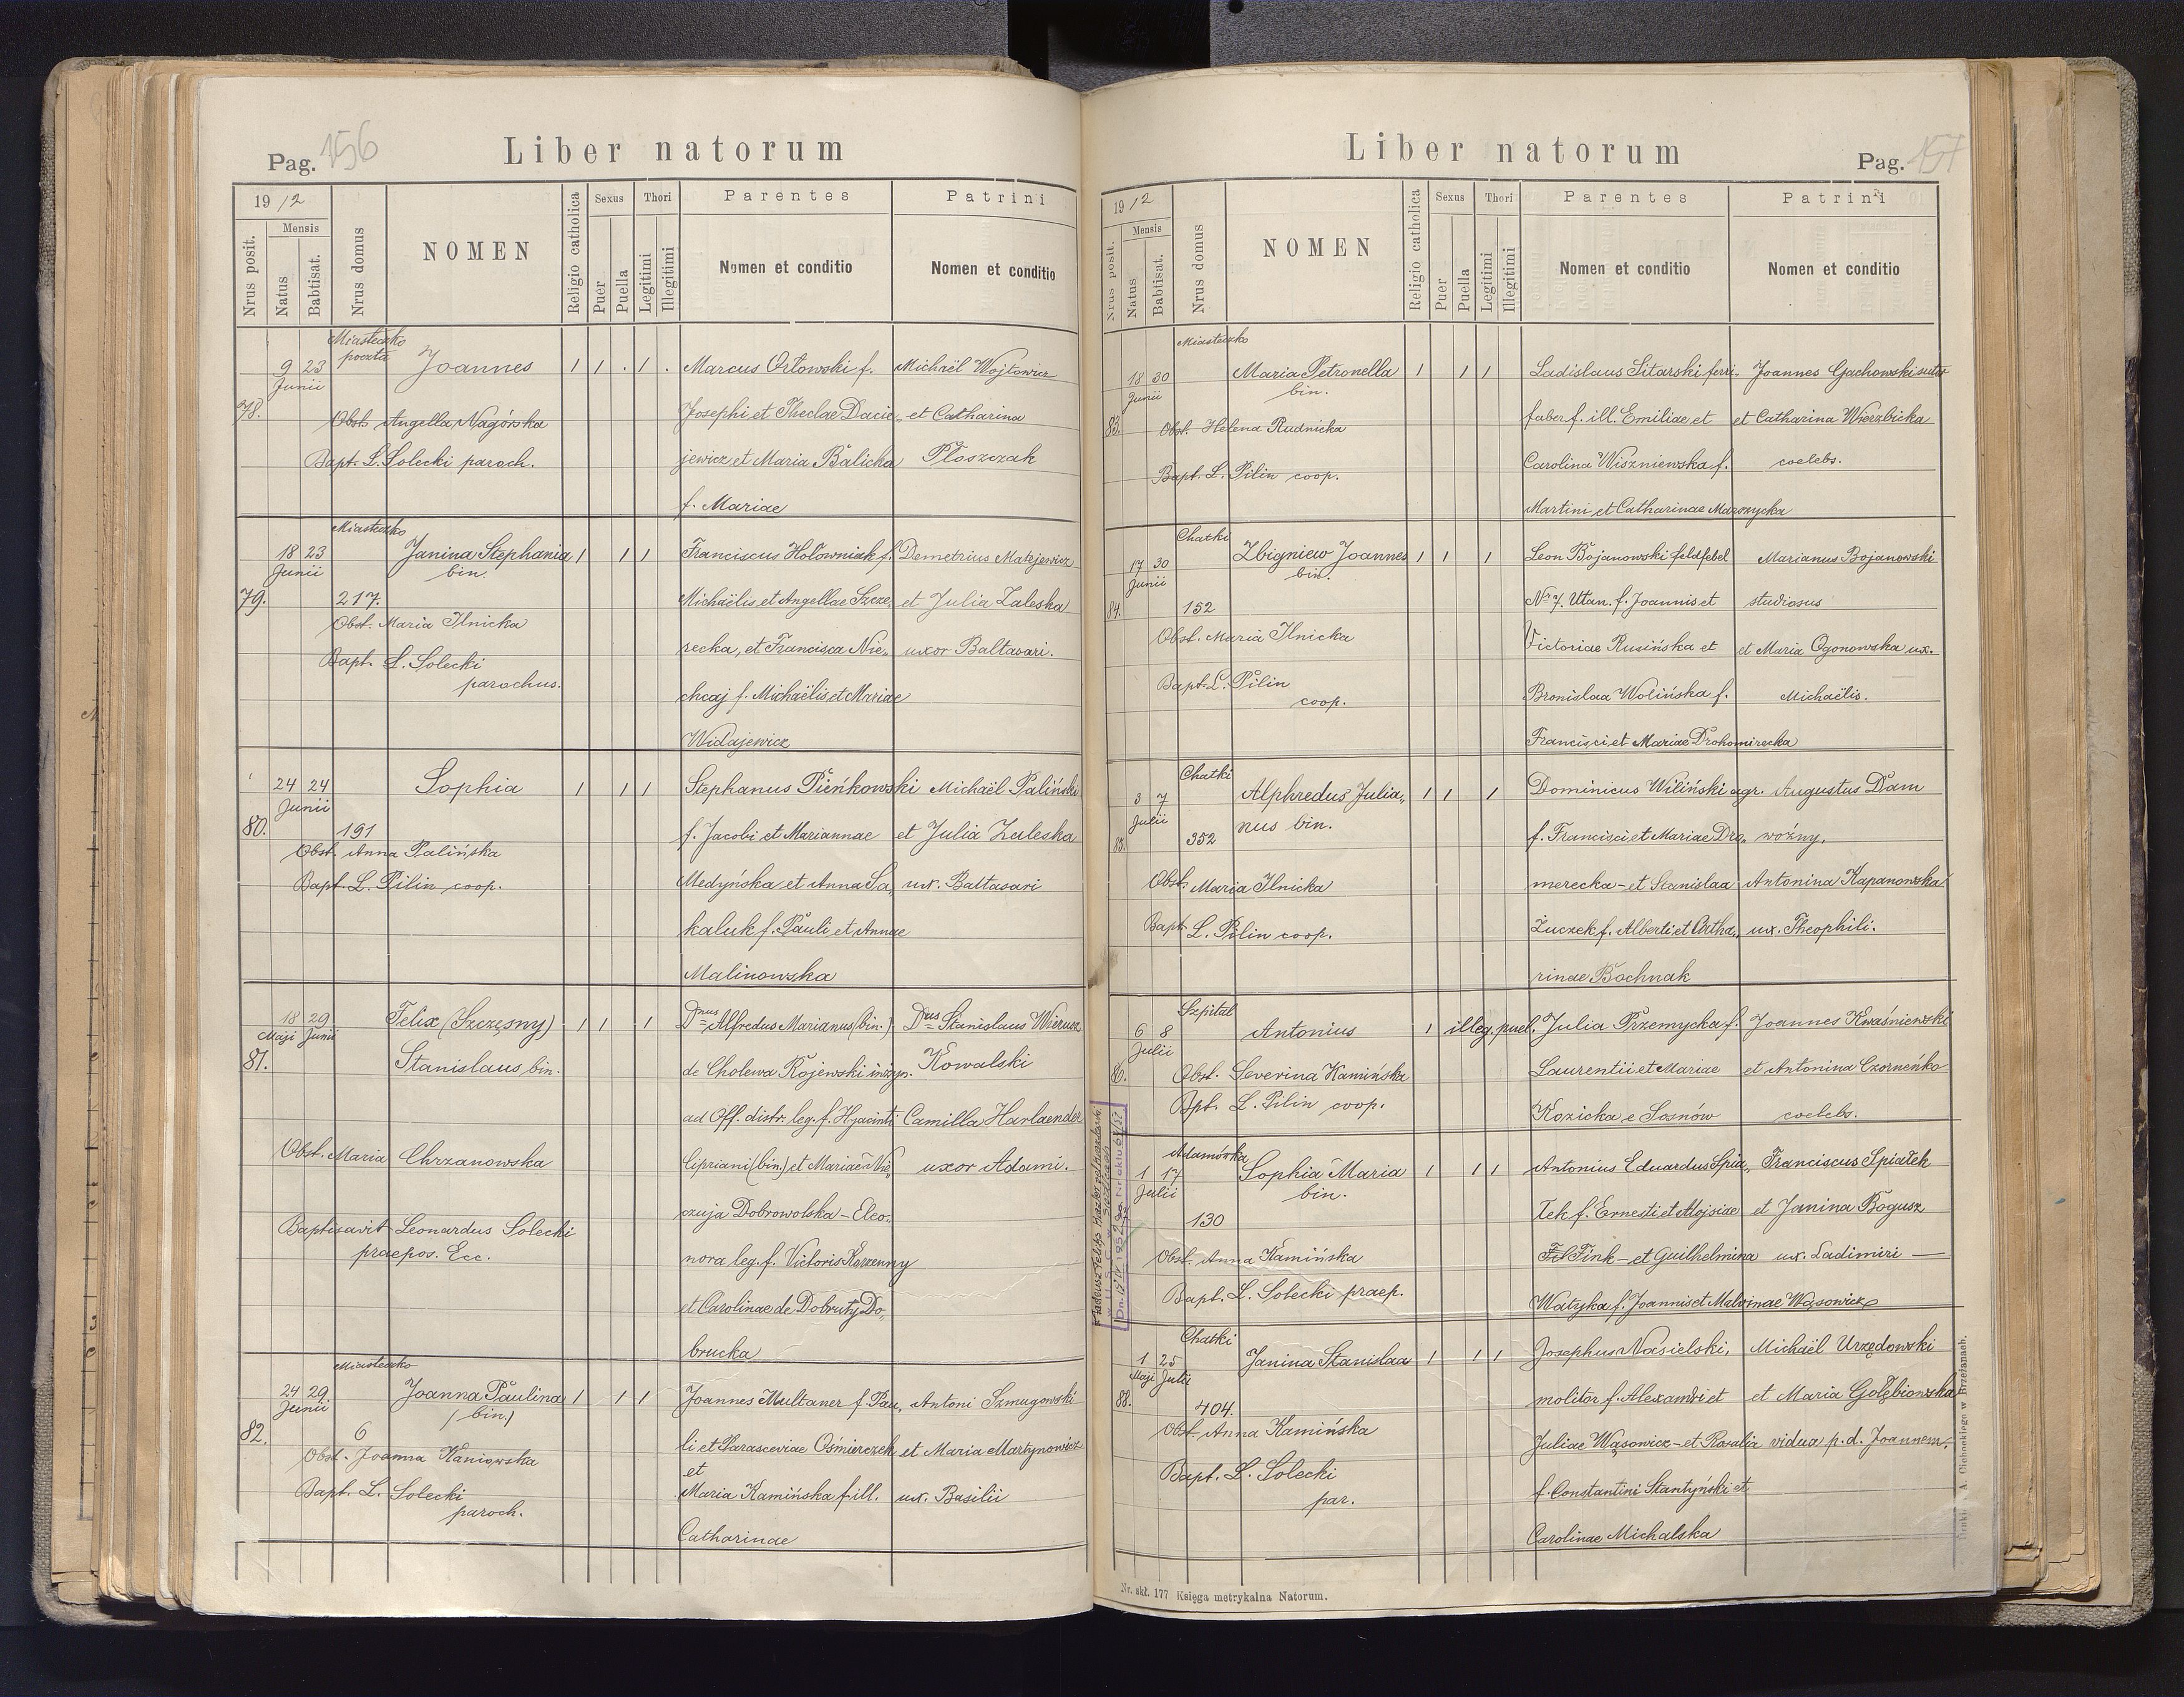 Pag. 156
Liber natorum
1912
Nrus posit.
Mensis
Natus
Babtisat.
Nrus domus
NOMEN
Religio catholica
Sexus
Puer
Puella
Thori
Legitimi
Illegitimi
Parentes
Nomen et conditio
Patrini
Nomen et conditio
78.
9 23
Junii
Miasteczko
poczta
Joannes
1 1 . 1 .
Obst. Angella Nagórska
Bapt. L. Solecki paroch.
Marcus Orłowski f.
Josephi et Theclae Dacie„
jewicz et Maria Balicka
f. Mariae
Michaël Wojtowicz
et Catharina
Płoszczak
79.
18 23
Junii
Miasteczko
217.
Janina Stephania
bin.
1 1 1
Obst. Maria Ilnicka
Bapt. L. Solecki
parochus.
Franciscus Hołowniak f.
Michaëlis et Angellae Szcze„
recka, et Francisca Nie„
chcaj f. Michaëlis et Mariae
Widajewicz
Demetrius Matejewicz
et Julia Zaleska
uxor Baltasari.
80.
24 24
Junii
191
Sophia
1 1 1
Obst. Anna Palińska
Bapt. L. Pilin coop.
Stephanus Pieńkowski
f. Jacobi et Mariannae
Medyńska et Anna Sa„
kaluk f. Pauli et Annae
Malinowska
Michaël Paliński
et Julia Zaleska
ux. Baltasari
81.
18 29
Maji Junii
Felix (Szczęsny)
Stanislaus bin.
1 1 1
Obst. Maria Chrzanowska
Baptisavit Leonardus Solecki
praepos. Ecc.
Dnus Alfredus Marianus (bin.)
de Cholewa Kojewski inżyn.
ad Off. distr. leg. f. Hyacinti
Cipriani (bin.) et Mariae Nie„
czuja Dobrowolska – Eleo„
nora leg. f. Victoris Korzenny
et Carolinae de Dobruty Do„
brucka
Dnus Stanislaus Wierusz
Kowalski
Camilla Harlaender
uxor Adami.
82.
24 29
Junii
Miasteczko
6
Joanna Paulina
(bin.)
1 1 1
Obst. Joanna Kaniowska
Bapt. L. Solecki
paroch.
Joannes Multaner f. Pau„
li et Parasceviae Ośmierczek
et
Maria Kamińska f. ill.
Catharinae
Antoni Szmugowski
et Maria Martynowicz
ux. Basilii
Liber natorum
Pag. 157
1912
Nrus posit.
Mensis
Natus
Babtisat.
Nrus domus
NOMEN
Religio catholica
Sexus
Puer
Puella
Thori
Legitimi
Illegitimi
Parentes
Nomen et conditio
Patrini
Nomen et conditio
83.
18 30
Junii
Miasteczko
Maria Petronella
bin.
1 1 1
Obst. Helena Rudnicka
Bapt. L. Pilin coop.
Ladislaus Sitarski ferri„
faber f. ill. Emiliae et
Carolina Wiszniewska f.
Martini et Catharinae Marszycka
Joannes Gachowski sutor
et Catharina Wierzbicka
coelebs.
84.
17 30
Junii
Chatki
152
Zbigniew Joannes
bin.
1 1 1
Obst. Maria Ilnicka
Bapt. L. Pilin
coop.
Leon Bojanowski feldfebel
Nr 7. Utan. f. Joannis et
Victoriae Rusińska et
Bronislaa Wolińska f.
Francisci et Mariae Drohomirecka
Marianus Bojanowski
studiosus
et Maria Ogonowska ux.
Michaëlis.
85.
3 7
Julii
Chatki
352
Alphredus Julia„
nus bin.
1 1 1
Obst. Maria Ilnicka
Bapt. L. Pilin coop.
Dominicus Wiliński agr.
f. Francisci et Mariae Dro„
merecka – et Stanislaa
Żuczek f. Alberti et Catha„
rinae Bochnak
Augustus Dam
woźny.
Antonina Kapanowska
ux. Theophili.
86.
6 8
Julii
Szpital
Antonius
1 illeg. puel.
Obst. Severina Kamińska
Bpt. L. Pilin coop.
Julia Przemycka f.
Laurentii et Mariae
Kozicka e Sosnów
Joannes Kwaśniewski
et Antonina Czorneńko
coelebs.
1 17
Julii
Adamówka
130
Sophia Maria
bin.
1 1 1
Obst. Anna Kamińska
Bapt. L. Solecki praep.
Antonius Eduardus Spia„
tek f. Ernesti et Alojsiae
Fink – et Guilhelmina
Watyka f. Joannis et Malvinae Wąsowicz
Franciscus Spiatek
et Janina Bogusz
ux. Ladimiri —
88.
1 25
Maji Julii
Chatki
404.
Janina Stanislaa
1 1 1
Obst. Anna Kamińska
Bapt. L. Solecki
par.
Josephus Nasielski,
molitor f. Alexandri et
Juliae Wąsowicz – et Rosalia
f. Constantini Stantyński et
Carolinae Michalska
Michaël Urzędowski
et Maria Gołębiowska
vidua p. d. Joannem.
Nr. skł. 177 Księga metrykalna Natorum.